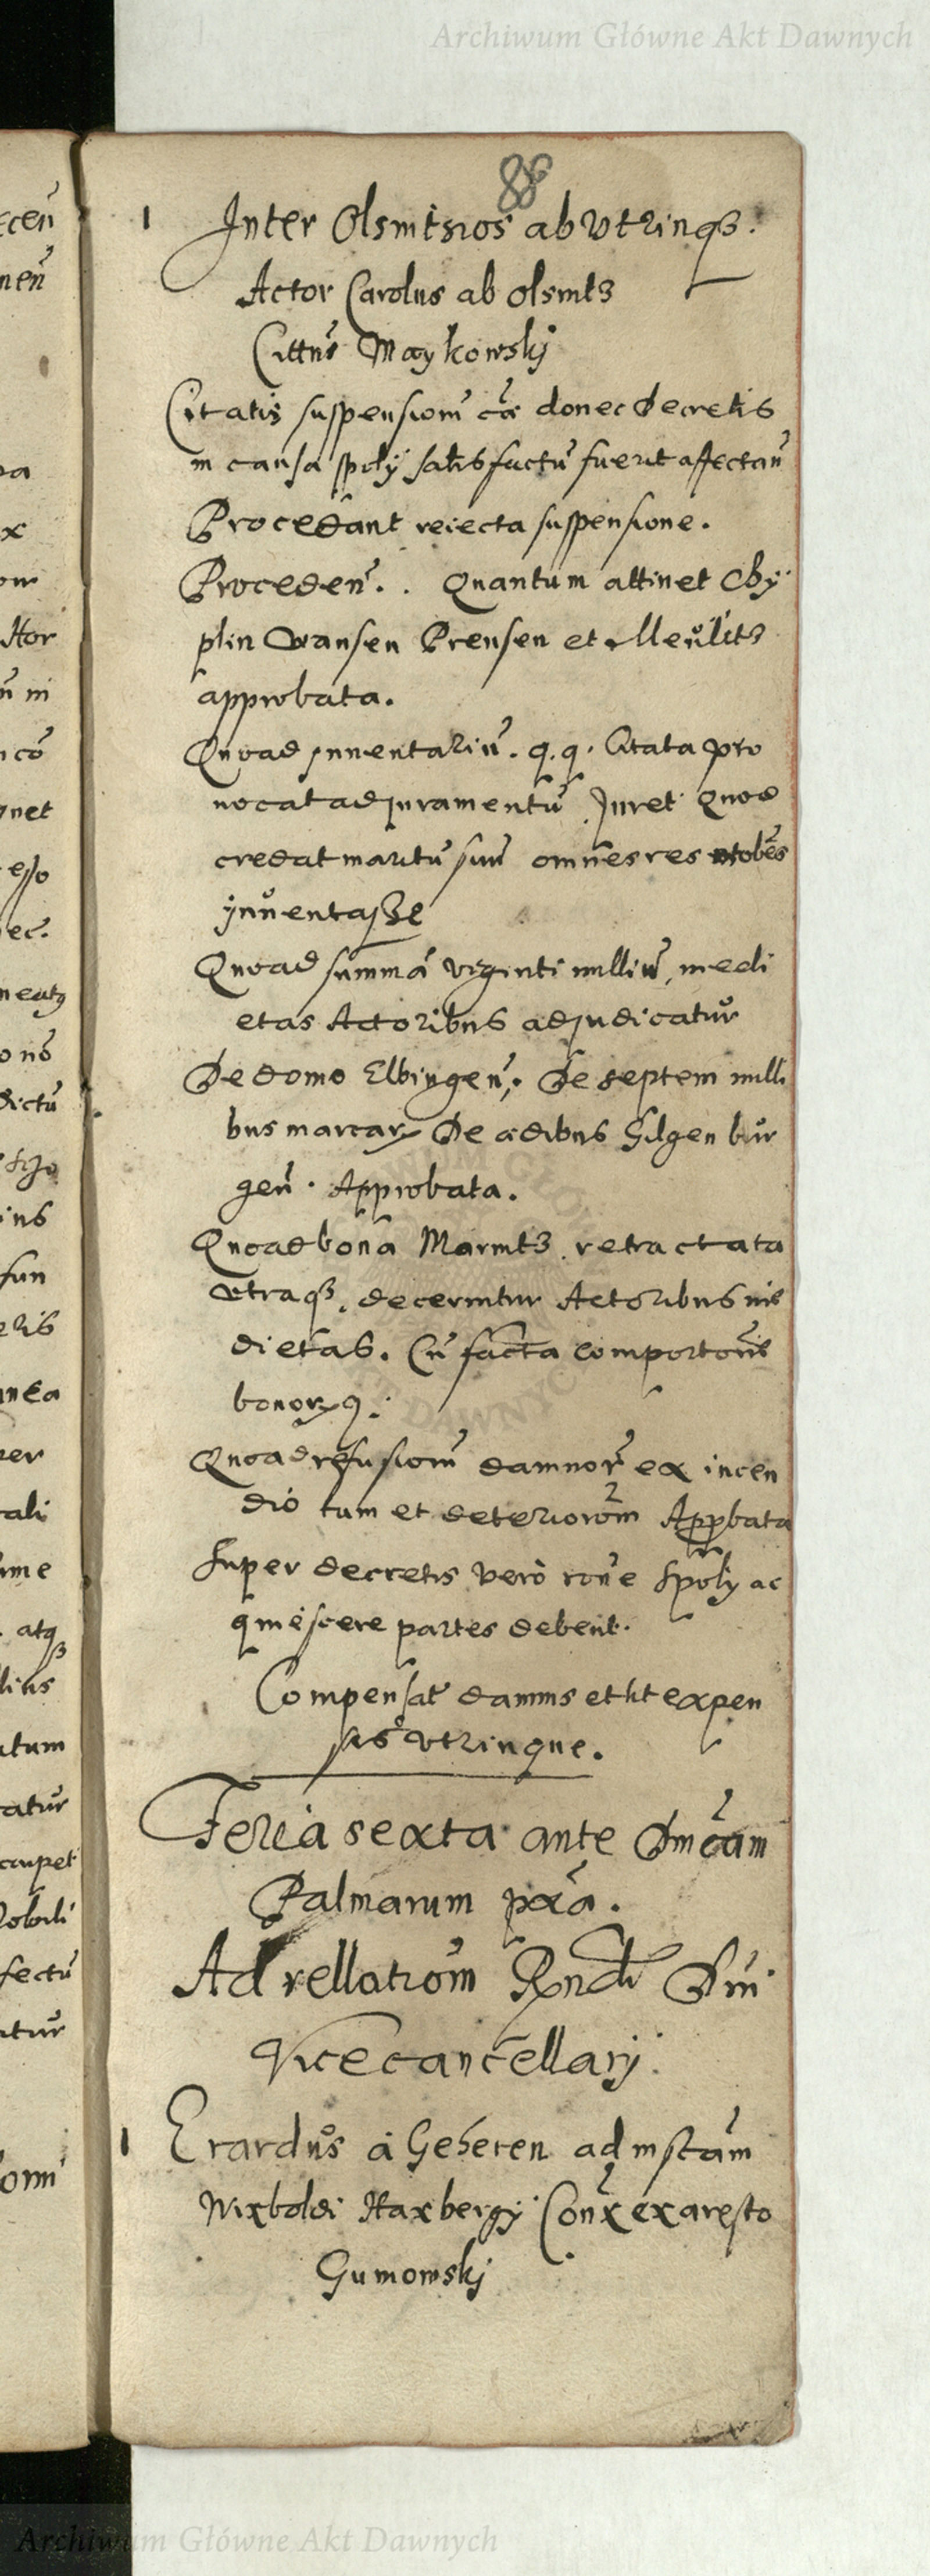 Archiwum Główne Akt Dawnych
88
1 Inter Olsmtsios ab Utrinqꝫ.
Actor Carolus ab Olsmts
Cittus Maykowskj
Citatis suspensiom cæ donec Decretis
in causa spoly satisfactū fuerit affectan̄
Procedant reiecta suspensione.
Proceden̄. . Quantum attinet Chy
plin Wansen Prensen et Meulits
approbata.
Quoad Inuentariū. q. q. Citata pro
nocat ad juramentū Juret Quod
credat maritū suū omnes res
jnuentasse
Quoad summā viginti milliū, medi
etas Actoribus adjudicatur
De domo Elbingen̄. De septem milli
bus marcarꝝ De ædibus Gilgen bur
gen̄. Approbata.
Quoad bona Marmts retractata
utraqꝫ decernitur Actoribus
dietas. Cū facta comportonis
bonorꝝ q.
Quoad refusiom damnoꝝ ex incen
dio tum et deteriorom Approbata
Super decretis vero rone Spoly ac
quiescere partes debent.
Compensat damnis et lit expen
sis utrinque.
Feria sexta ante Dmcam
Palmarum pxa.
Ad rellatiom Rndi Dni
Vicecancellarj.
1 Erardus a Geheren ad instam
Wixboldi Haxbergÿ Conx ex aresto
Gumowskj
Archiwum Główne Akt Dawnych